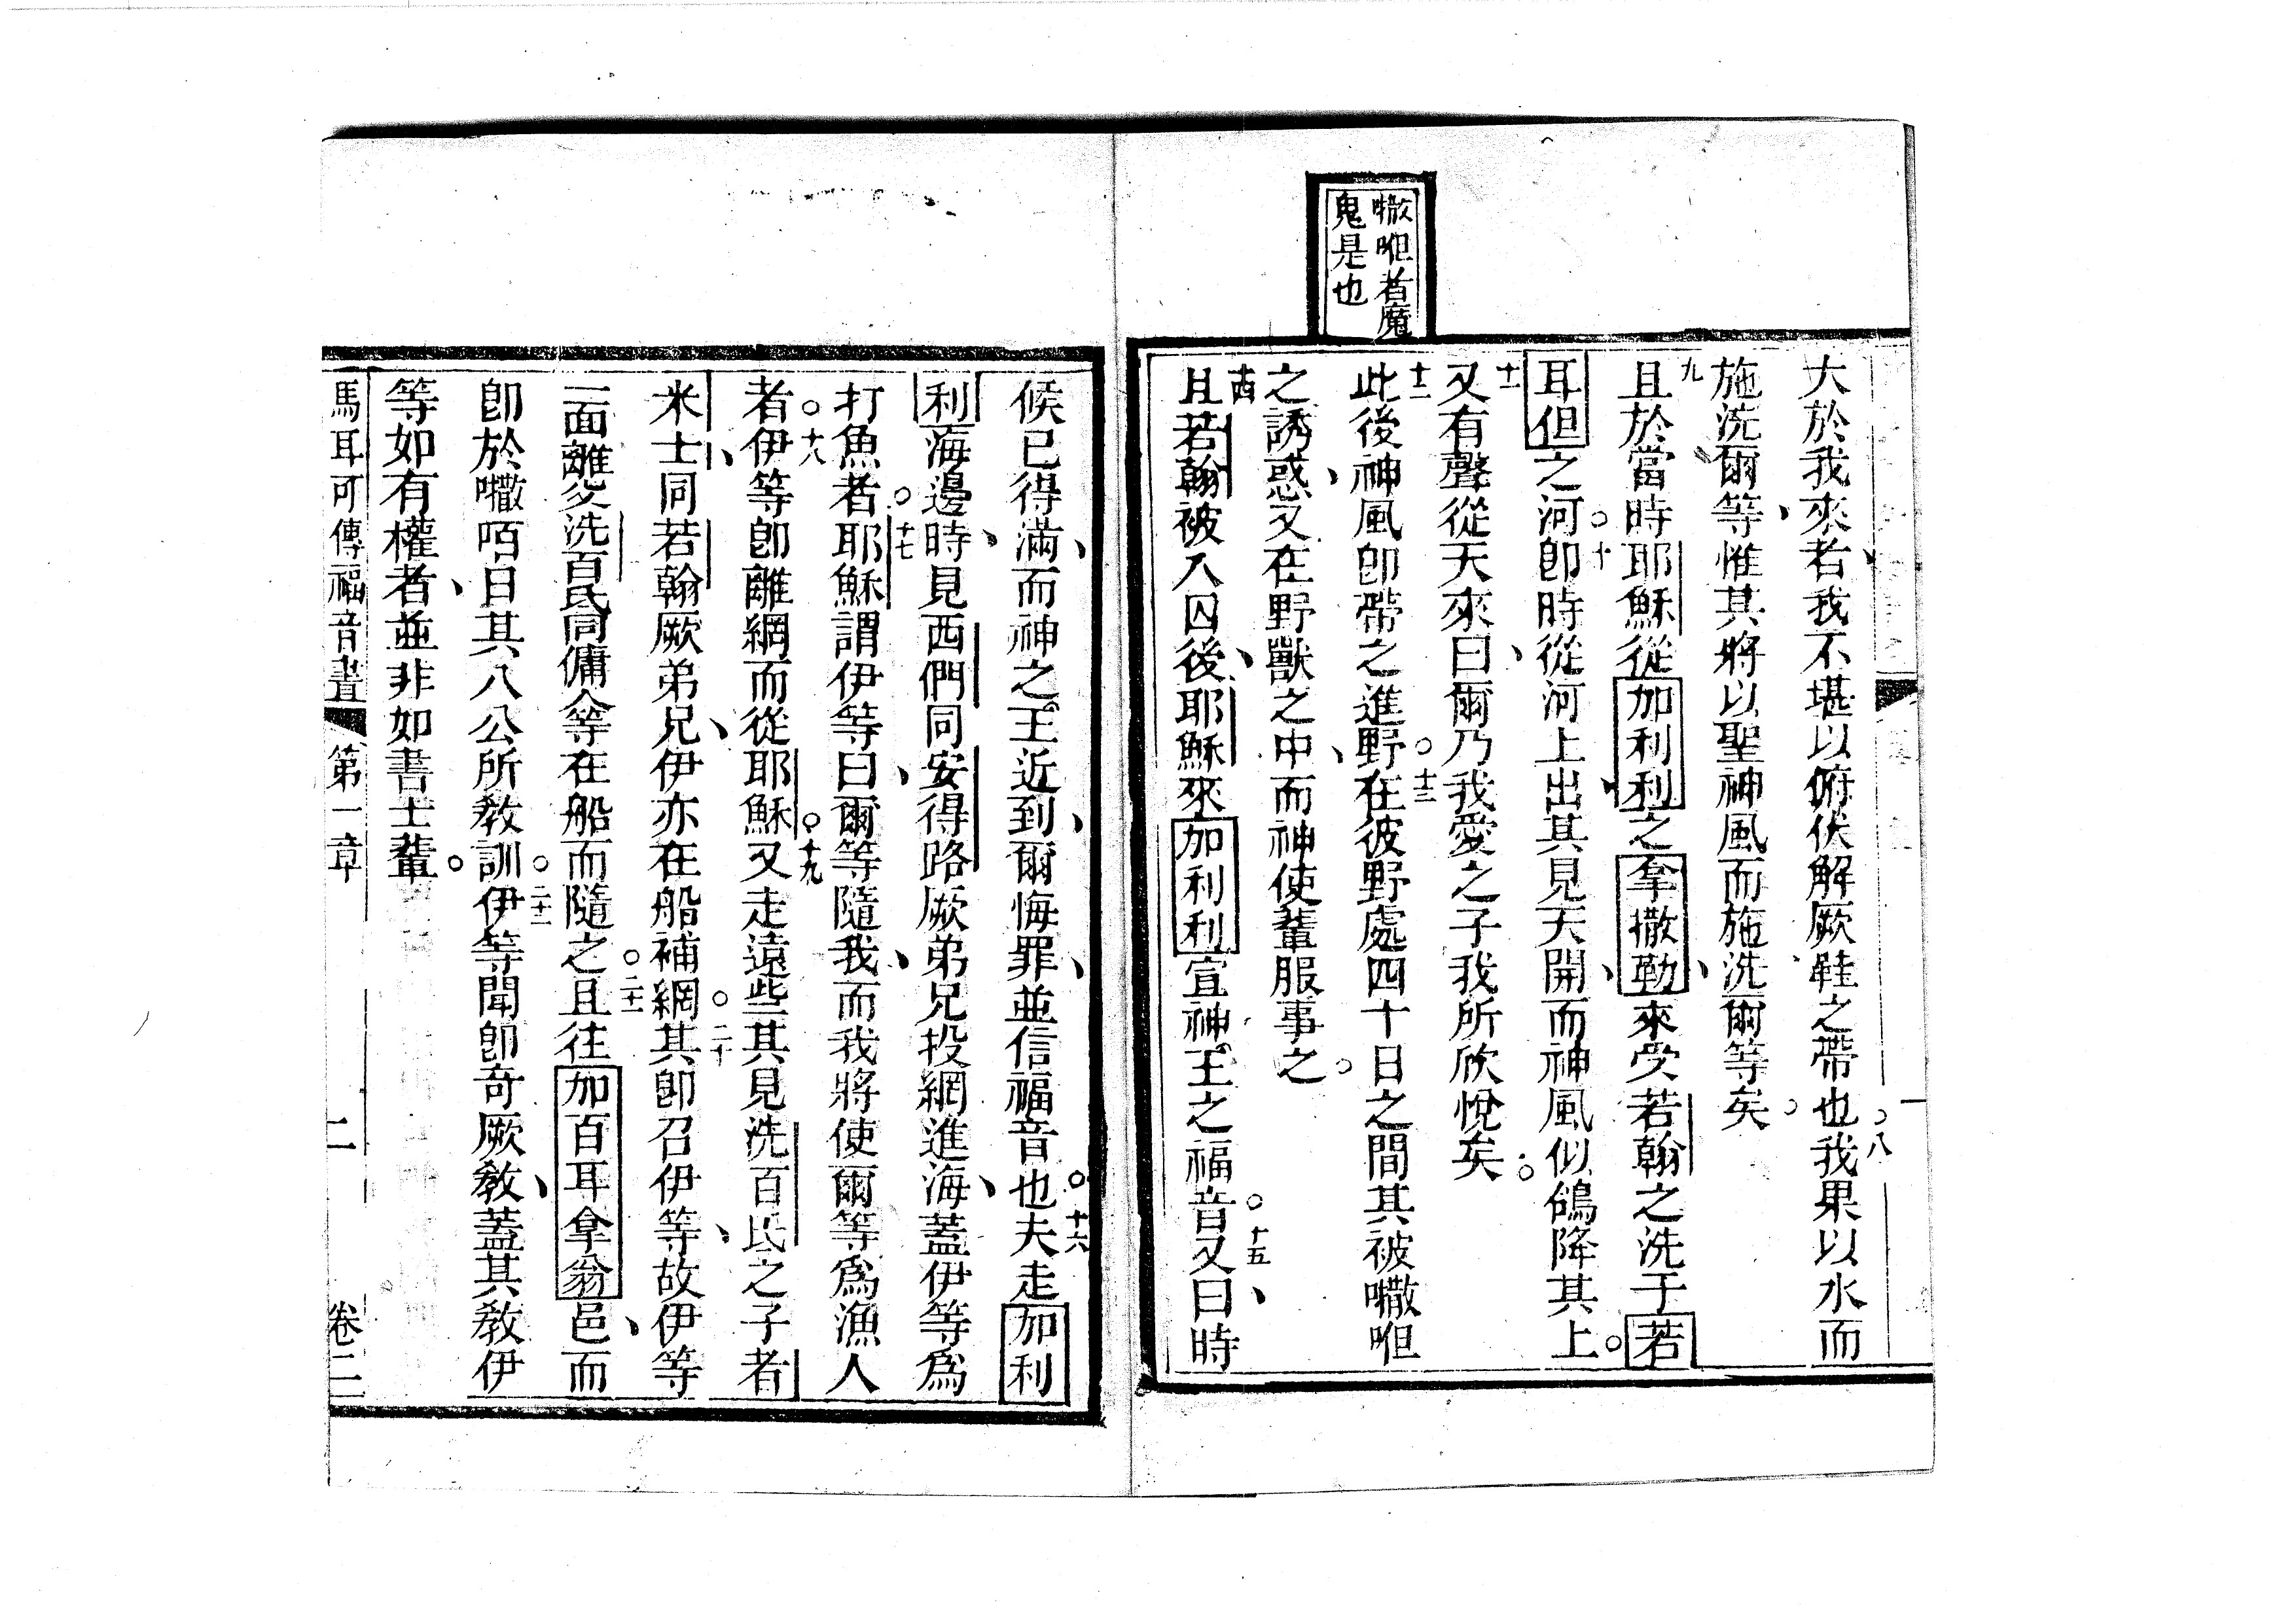 㘔呾者魔
鬼是也
大於我來者我不堪以俯伏解厥鞋之帶也○八我果以水而
施洗爾等惟其將以聖神風而施洗爾等矣○
九且於當時耶穌從加利利之拿撒勒來受若翰之洗于若
耳但之河○十卽時從河上出其見天開而神風似鴿降其上○
十一又有聲從天來曰爾乃我愛之子我所欣悅矣○
十二此後神風卽帶之進野○十三在彼野處四十日之間其被㘔呾
之誘惑又在野獸之中而神使輩服事之○
十四且若翰被入囚後耶穌來加利利宣神王之福音○十五又曰時
候已得滿而神之王近到爾悔罪並信福音也○十六夫走加利
利海邊時見西們同安得路厥弟兄投網進海蓋伊等爲
打魚者○十七耶穌謂伊等曰爾等隨我而我將使爾等爲漁人
者○十八伊等卽離網而從耶穌○十九又走遠些其見洗百氏之子者
米士同若翰厥弟兄伊亦在船補網○二十其卽召伊等故伊等
一面離父洗百氏同傭人等在船而隨之○二十一且往加百耳拿翁邑而
卽於㘔咟日其入公所教訓○二十二伊等聞卽奇厥教蓋其教伊
等如有權者並非如書士輩○
馬耳可傳福音書 第一章 二 卷二